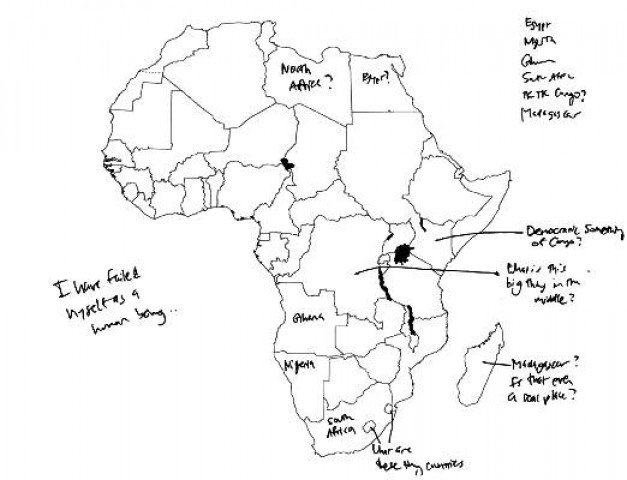 Egypt
Nigeria
Ghana
South Africa
Congo?
Madagascar
North
Africa?
Egypt?
Democratic Something
of Congo?
What is this
big thing in the
middle?
I have failed
myself as a
human being..
Ghana
Nigeria
Madagascar?
Is that even
a real place?
South
Africa
What are
these tiny countries